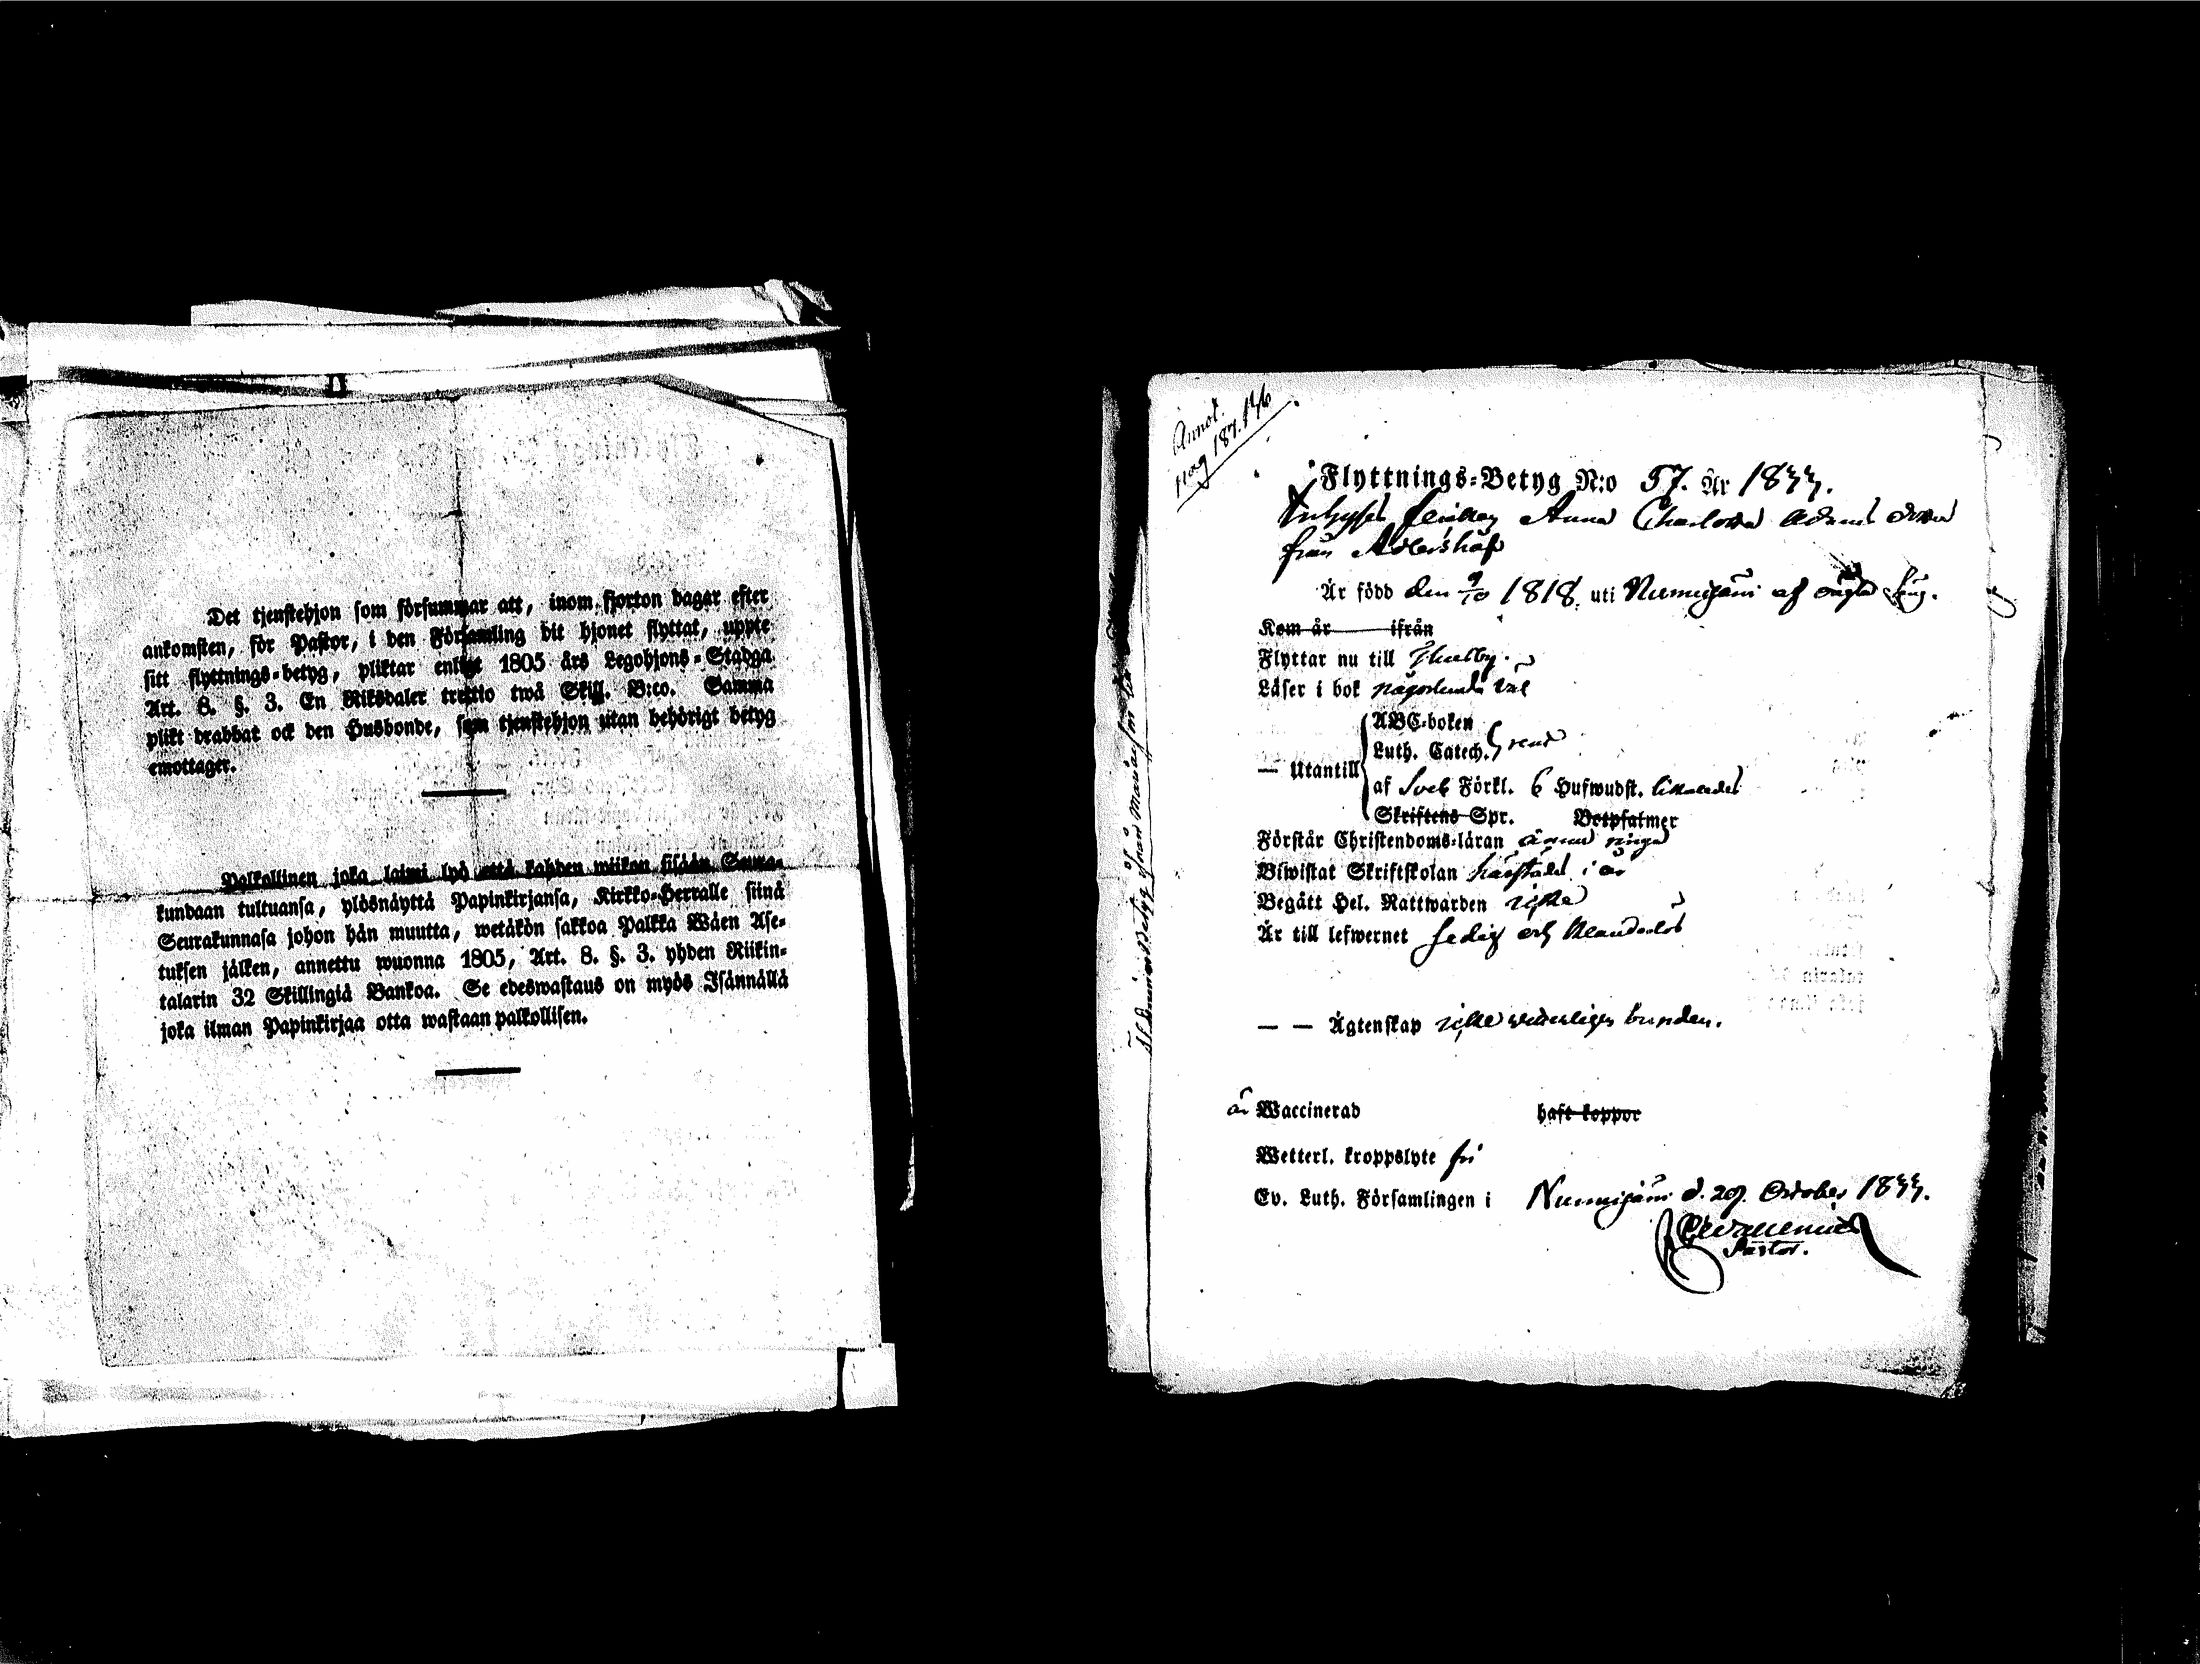 Det tjenstehjon som försummar att, inom fjorton dagar efter
ankomsten, för Pastor, i den Församling dit hjonet flyttat, uppte
sitt flyttnings-betyg, pliktar enligt 1805 års Legohjons-Stadga
Art. 8. §. 3. En Riksdaler trettio twå Skill. B:co. Samma
plikt drabbat ock den Husbonde, som tjenstehjon utan behörigt betyg
emottager.
Palkollinen joka laimi lyö että kahden wiikon sisään Seura-
kundaan tultuansa, ylösnäyttä Papinkirjansa, Kirkko-Herralle siinä
Seurakunnasa johon hän muutta, wetäkön sakkoa Palkka Wäen Ase-
tuksen jälken, annettu wuonna 1805, Art. 8. §. 3. yhden Riikin-
talarin 32 Skillingiä Bankoa. Se edeswastaus on myös Isännällä
joka ilman Papinkirjaa otta wastaan palkollisen.
Annot.
pag 187. 136
Flyttnings-Betyg N:o 57. År 1833.
Anna Charlotta Adams dotter
från
Är född den 9/10 1818. uti Nummijärvi af
Kom år ifrån
Flyttar nu till Thusby.
Läser i bok någorlunda väl
ABC-boken
Luth. Catech. rent
— Utantill
af Sveb Förkl. 6 Hufwudst. likaledes
Skriftens Spr. Botpsalmer
Förstår Christendoms-läran ännu ringa
Biwistat Skriftskolan härstädes i år
Begått Hel. Nattwarden icke
Är till lefwernet sedig och klanderlös
— — Ägtenskap icke veterligen bunden.
är Waccinerad haft koppor
Wetterl. kroppslyte fri
Ev. Luth. Församlingen i Nummijärvi d. 29. October 1833.
Pastor.